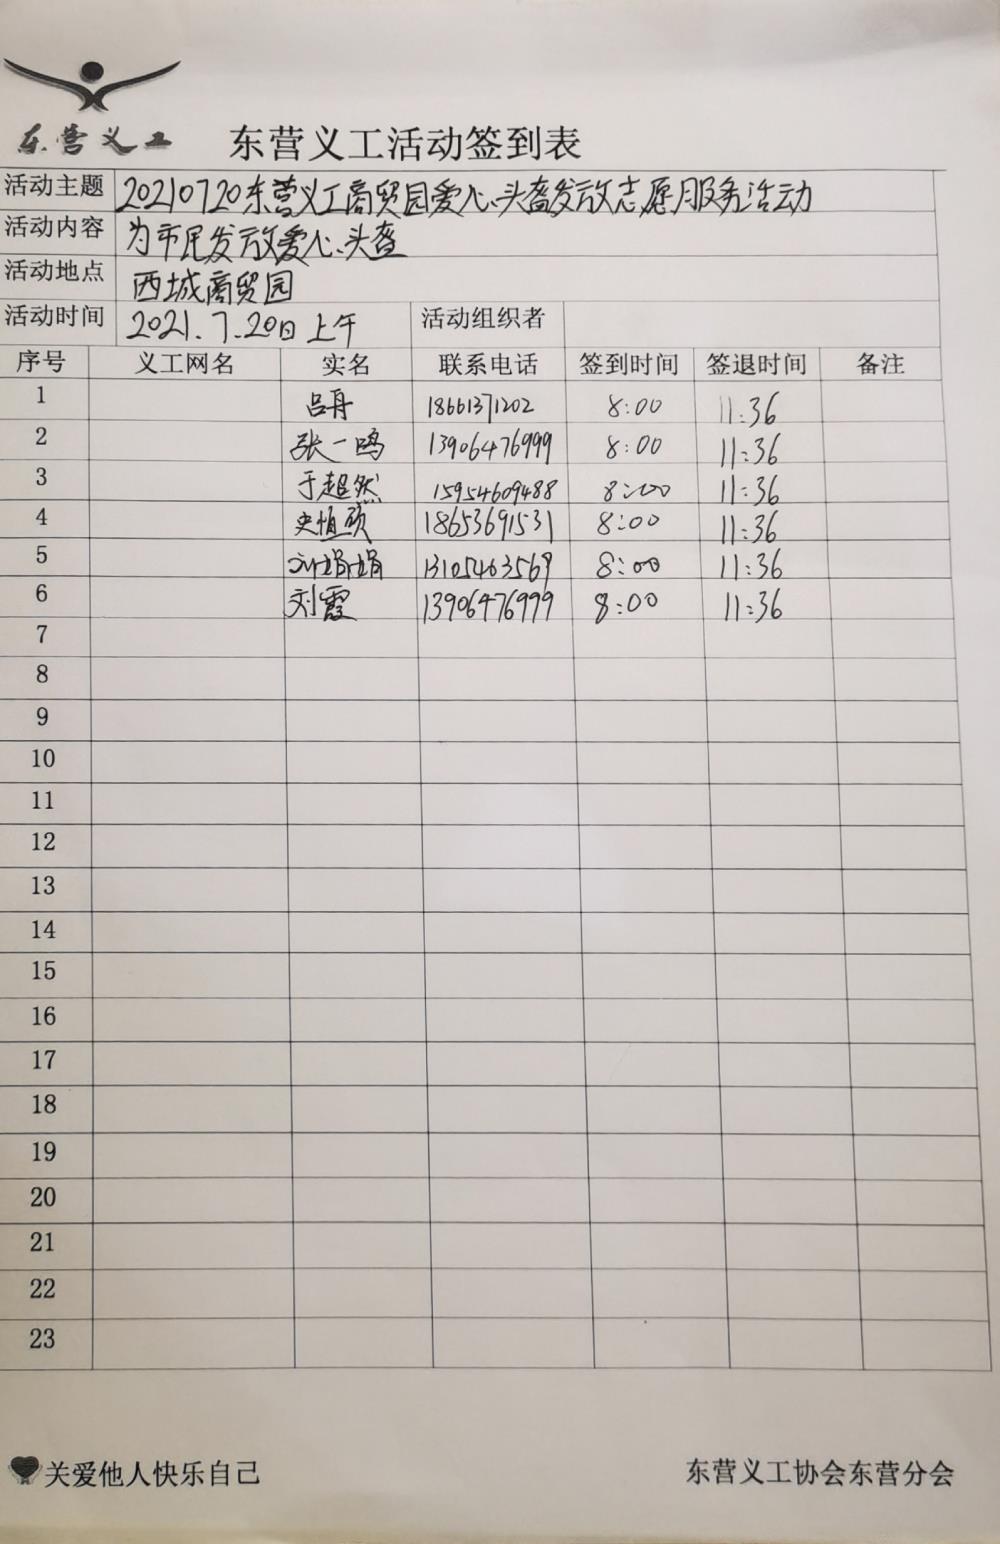 东营义工
东营义工活动签到表
活动主题 20210720东营义工商贸园爱心头盔发放志愿服务活动
活动内容 为市民发放爱心头盔
活动地点 西城商贸园
活动时间 2021.7.20日上午 活动组织者
序号 义工网名 实名 联系电话 签到时间 签退时间 备注
1 吕舟 18661371202 8:00 11:36
2 张一鸣 13906476999 8:00 11:36
3 于超然 15954609488 8:00 11:36
4 18653691531 8:00 11:36
5 刘娟娟 13105463569 8:00 11:36
6 刘霞 13906476999 8:00 11:36
7
8
9
10
11
12
13
14
15
16
17
18
19
20
21
22
23
关爱他人快乐自己 东营义工协会东营分会